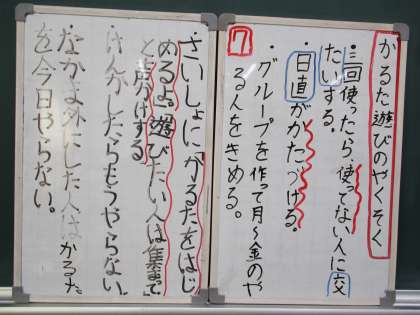 かるた遊びのやくそく
・三回使ったら、使ってない人に交
たいする。
・日直がかたづける。
7
・グループを作って月～金のや
る人をきめる。
・さいしょに「かるたをはじ
めるよ。遊びたい人は集まて」
と声かけする
・けんかしたらもうやらない。
・なかま外にした人はかるた
を今日やらない。